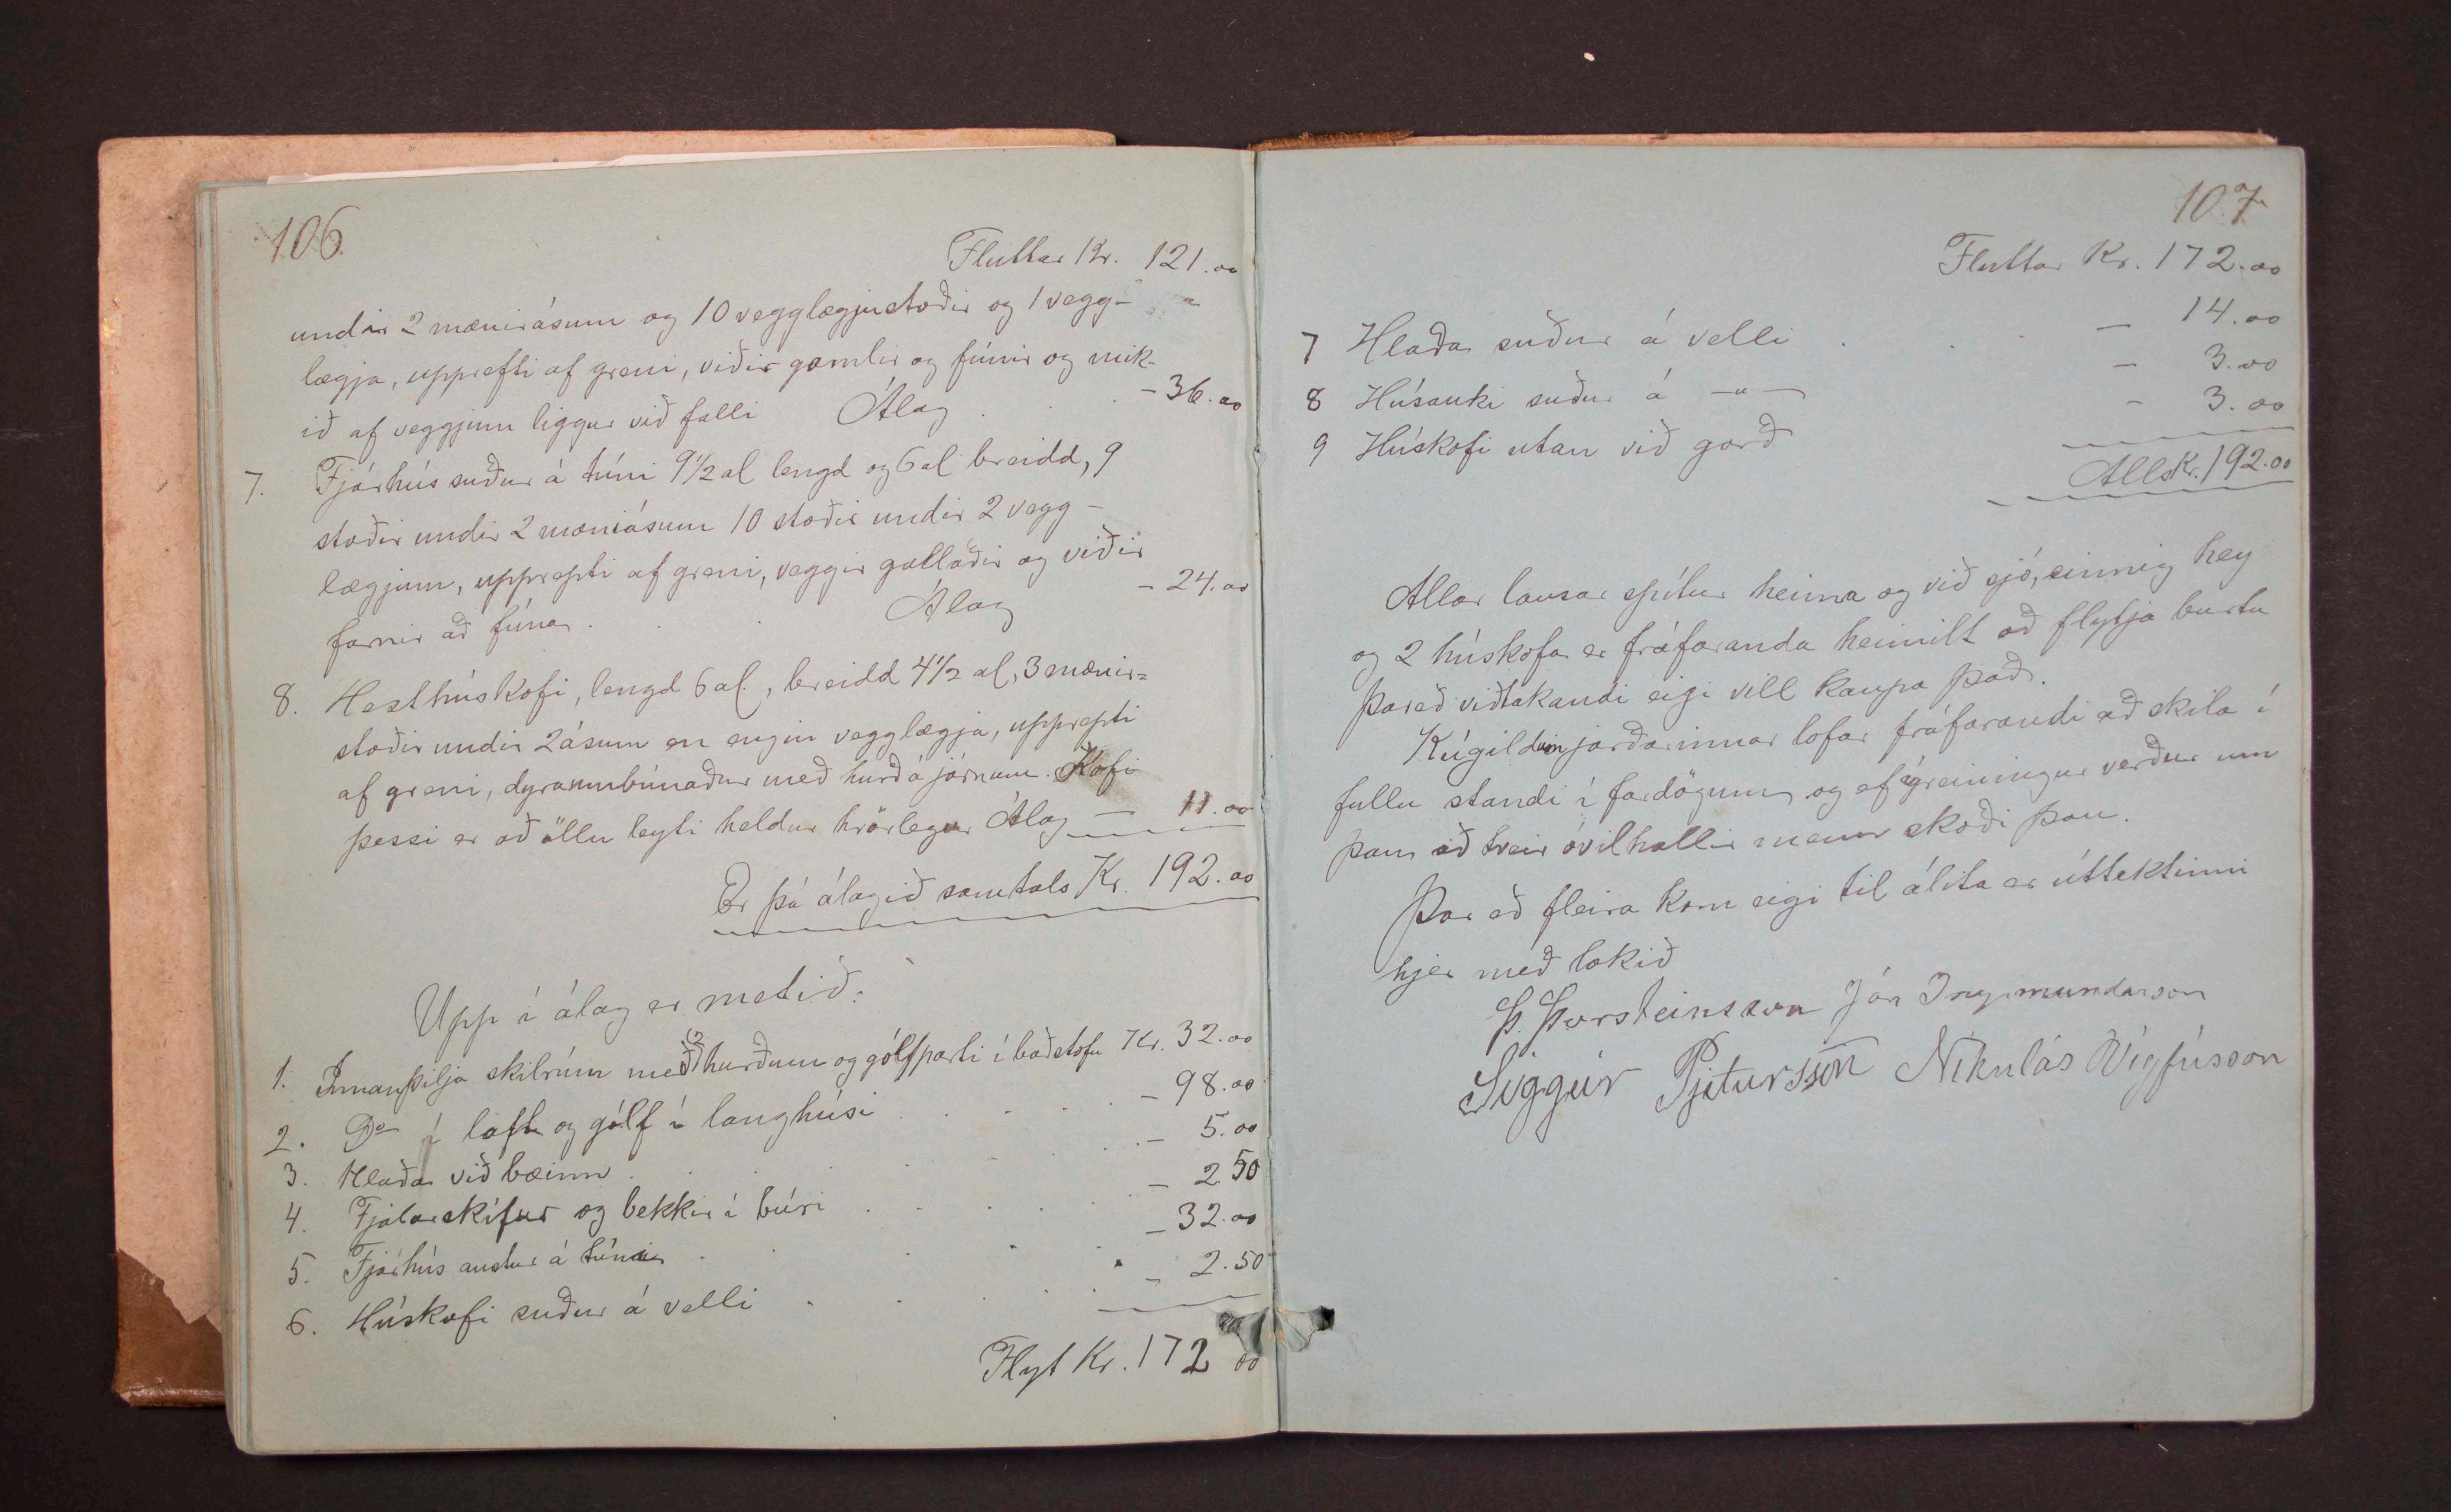 106.
Fluttar Kr. 121.00
undir 2 mænirásum og 10 vegglægjustoðir og 1 vegg-
lægja, upprefti af greni, viðir gamlir og fúnir og mik-
ið af veggjum liggur við falli Álag . . . - 36.00
7. Fjárhús suður á túni 9 1/2 al lengd og 6 al breidd, 9
stoðir undir 2 mæniásum 10 stoðir undir 2 vegg-
lægjum, upprepti af greni, veggir gallaðir og viðir
farnir að fúna . . . Álag - 24.00
8. Hesthúskofi, lengd 6 al., breidd 4 1/2 al, 3 mænir=
stoðir undir 2 ásum en engin vegglægja, upprepti
af greni, dyraumbúnaður með hurð á járnum. Kofi
þessi er að öllu leyti heldur hrörlegur Álag — 11.00
Er þá álagið samtals Kr. 192.00
Upp í álag er metið:
1. Innanþilja skilrúm með 2 hurðum og gólfparti í baðstofu Kr. 32.00
2. Do í loft og gólf í langhúsi . . . . . - 98.00
3. Hlaða við bæinn . . . . . . - 5.00
4. Fjalarskífur og bekkir í búri . . . . . - 2.50
5. Fjárhús austur á túni . . . . . - 32.00
6. Húskofi suður á velli . . . . . - 2.50
Flyt Kr. 172 00
107
Fluttar Kr. 172.00
7 Hlaða suður á velli . . . — 14.00
8 Húsauki suður á —"— — 3.00
9 Húskofi utan við garð - 3.00
Alls Kr. 192.00
Allar lausar spítur heima og við sjó, einnig hey
og 2 húskofa er fráfaranda heimilt að flytja burtu
þareð viðtakandi eigi vill kaupa það.
Kúgildum jarðarinnar lofar fráfarandi að skila í
fullu standi í fardögum og ef ágreiningur verður um
þau að tveir óvilhallir menn skoði þau.
Þar eð fleira kom eigi til álita er úttektinni
hjer með lokið
Þ. Þorsteinsson Jón Ingimundarson
Siggeir Pjetursson Nikulás Vigfússon